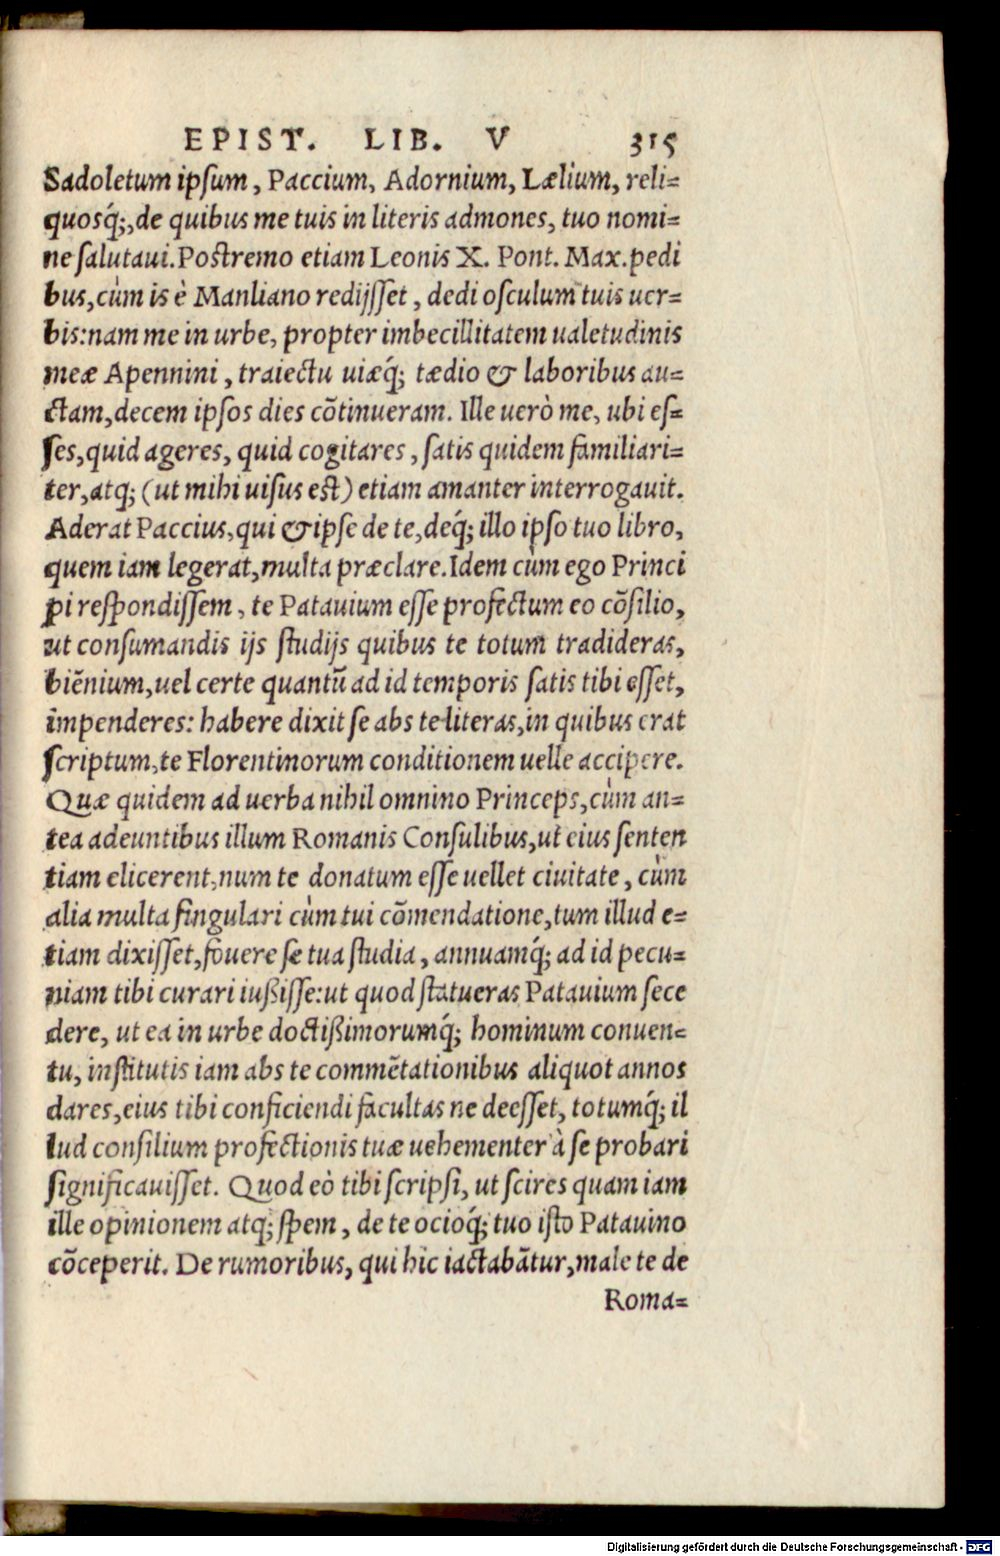 EPIST. LIB. V 315
Sadoletum ipſum, Paccium, Adornium, Lælium, reli=
quosq́;, de quibus me tuis in literis admones, tuo nomi=
ne ſalutaui. Poſtremo etiam Leonis X. Pont. Max. pedi
bus, cùm is è Manliano redijſſet, dedi oſculum tuis uer=
bis: nam me in urbe, propter imbecillitatem ualetudinis
meæ Apennini, traiectu uiæq́; tædio & laboribus au=
ctam, decem ipſos dies cõtinueram. Ille uerò me, ubi eſ=
ſes, quid ageres, quid cogitares, ſatis quidem familiari=
ter, atq; (ut mihi uiſus eſt) etiam amanter interrogauit.
Aderat Paccius, qui & ipſe de te, deq́; illo ipſo tuo libro,
quem iam legerat, multa præclare. Idem cùm ego Princi
pi reſpondiſſem, te Patauium eſſe profectum eo cõſilio,
ut conſumandis ijs ſtudijs quibus te totum tradideras,
biẽnium, uel certe quantũ ad id temporis ſatis tibi eſſet,
impenderes: habere dixit ſe abs te literas, in quibus erat
ſcriptum, te Florentinorum conditionem uelle accipere.
Quæ quidem ad uerba nihil omnino Princeps, cùm an=
tea adeuntibus illum Romanis Conſulibus, ut eius ſenten
tiam elicerent, num te donatum eſſe uellet ciuitate, cùm
alia multa ſingulari cùm tui cõmendatione, tum illud e=
tiam dixiſſet, fouere ſe tua ſtudia, annuamq́; ad id pecu=
niam tibi curari iußiſſe: ut quod ſtatueras Patauium ſece
dere, ut ea in urbe doctißimorumq́; hominum conuen=
tu, inſtitutis iam abs te commẽtationibus aliquot annos
dares, eius tibi conficiendi facultas ne deeſſet, totumq́; il
lud conſilium profectionis tuæ uehementer à ſe probari
ſignificauiſſet. Quod eò tibi ſcripſi, ut ſcires quam iam
ille opinionem atq; ſpem, de te ocioq́; tuo iſto Patauino
cõceperit. De rumoribus, qui hic iactabãtur, male te de
Roma=
Digitalisierung gefördert durch die Deutsche Forschungsgemeinschaft - DFG